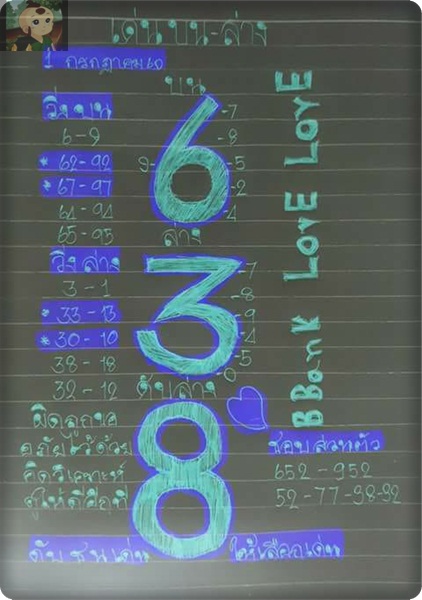 เด่นบน-ล่าง
1 กรกฎาคม60
บน
วิ่งบน
6-9
* 62-92
* 67-97
64-94
65-95
6
-7
-8
9-
-5
-2
-4
ล่าง
วิ่งล่าง
3-1
* 33-13
* 30-10
38-18
32-12
3
-7
-8
-9
-4
-5
-0
ดับล่าง
8
BBank LovE LovE
ผิดถูกขอ
อภัยไว้ด้วย
คิดวิเคราะห์
ชอบส่วนตัว
652-952
52-77-98-92
ดับชนเด่น
ให้เลือกเด่น